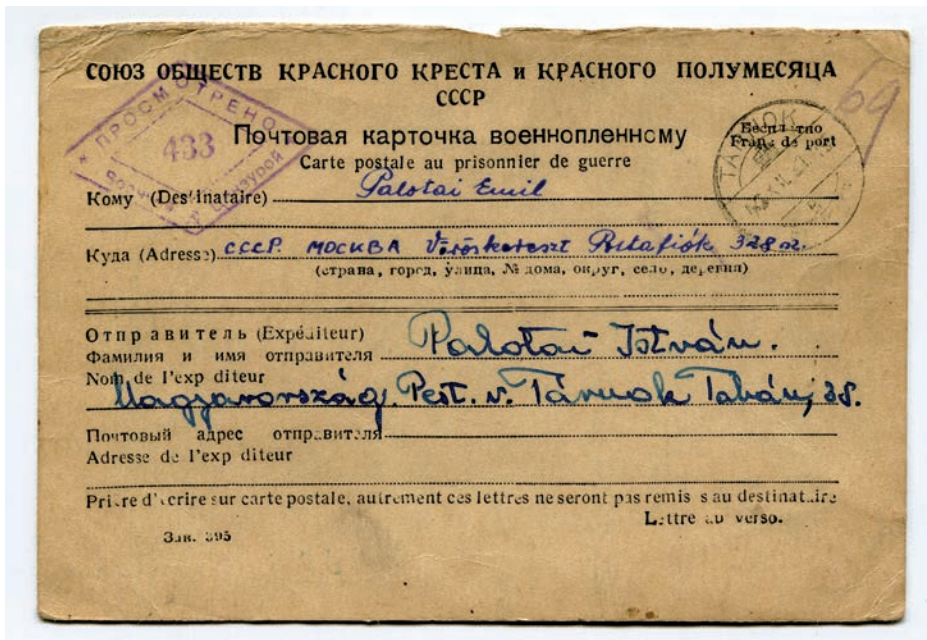 СОЮЗ ОБЩЕСТВ КРАСНОГО КРЕСТА и КРАСНОГО ПОЛУМЕСЯЦА
СССР
ПРОСМОТРЕНО
433
Почтовая карточка военнопленному
Carte postale au prisonnier de guerre
Бесплатно
Franc de port
69
Кому (Destinataire) Palotai Emil
Куда (Adresse) СССР. МОСКВА Vöröskereszt Postafiók 328 sz.
(страна, город, улица, № дома, округ, село, деревня)
Отправитель (Expéditeur)
Фамилия и имя отправителя Palotai István.
Nom de l'exp diteur
Magyarország. Pest. v. Tárnok Tabán, 38.
Почтовый адрес отправителя
Adresse de l'exp diteur
Prière d'écrire sur carte postale, autrement ces lettres ne seront pas remis s au destinataire
Lettre au verso.
Зак. 395